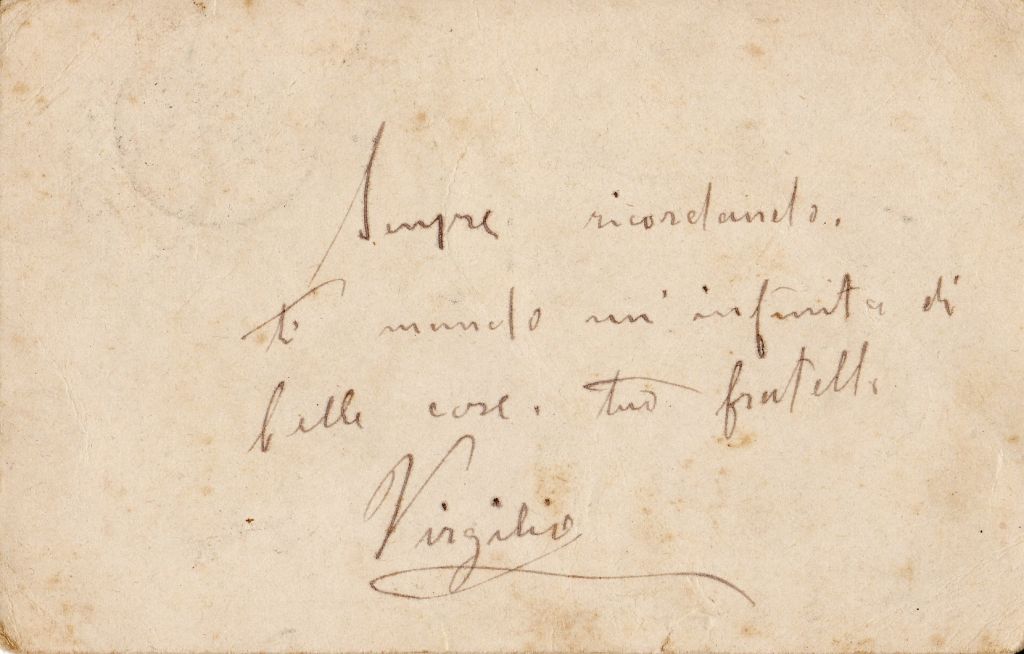 Sempre ricordando.
ti mando un' infinita di
belle cose. tuo fratello
Virgilio